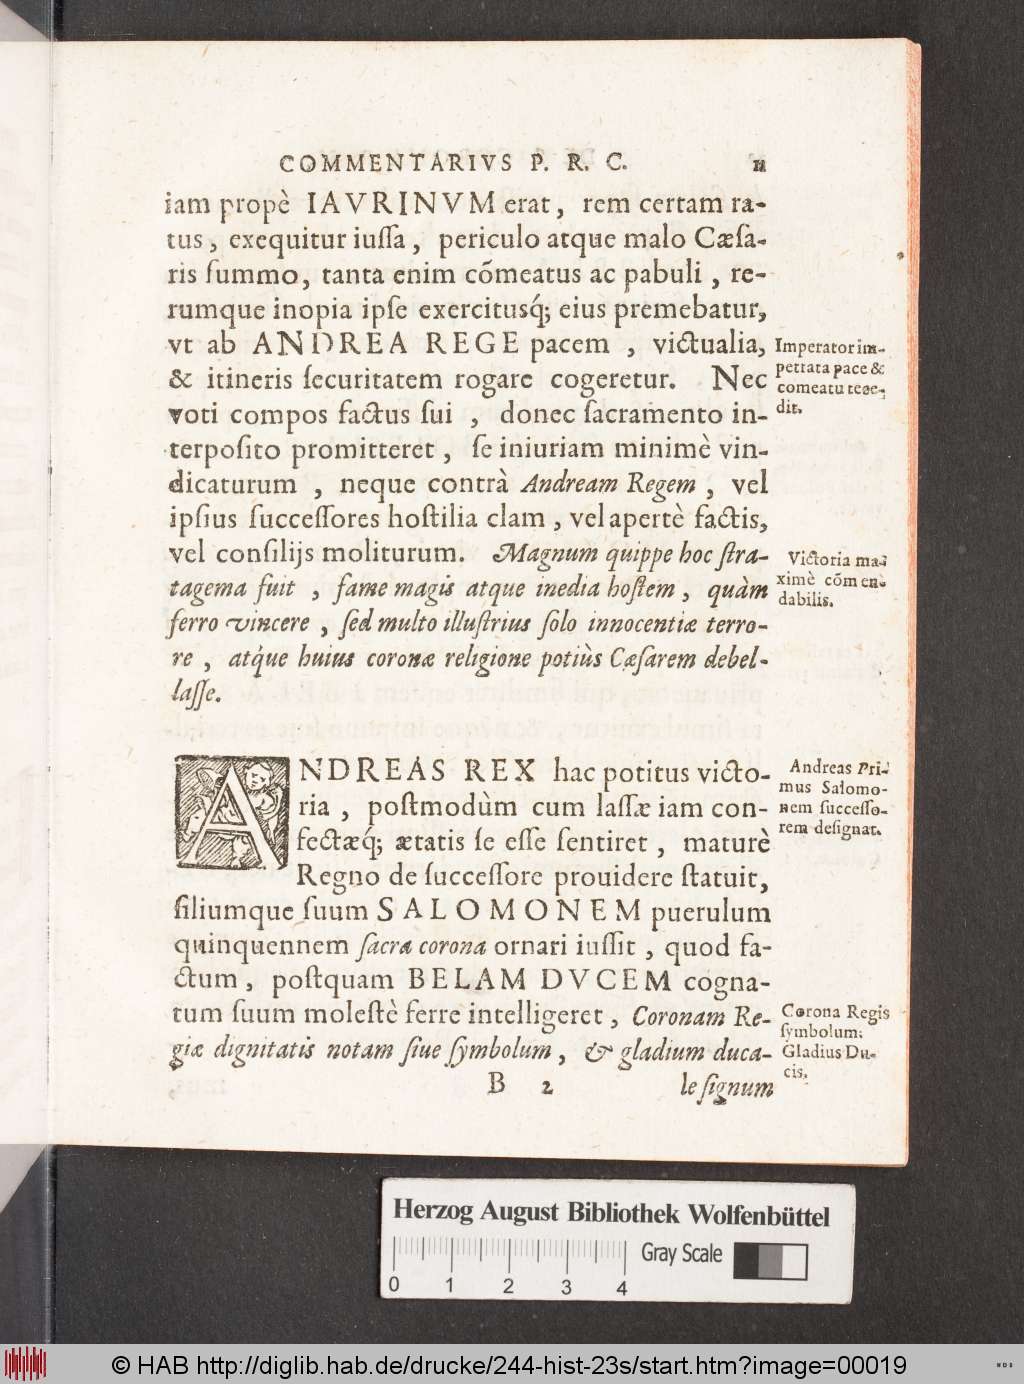 COMMENTARIVS P. R. C. 11
iam propè IAVRINVM erat, rem certam ra-
tus, exequitur iuſſa, periculo atque malo Cæſa-
ris ſummo, tanta enim cõmeatus ac pabuli, re-
rumque inopia ipſe exercitusq́; eius premebatur,
vt ab ANDREA REGE pacem, victualia,
& itineris ſecuritatem rogare cogeretur. Nec
voti compos factus fui, donec ſacramento in-
terpoſito promitteret, ſe iniuriam minimè vin-
dicaturum, neque contrà Andream Regem, vel
ipſius ſucceſſores hoſtilia clam, vel apertè factis,
vel conſilijs moliturum. Magnum quippe hoc ſtra-
tagema fuit, fame magis atque inedia hoſtem, quàm
ferro vincere, ſed multo illuſtrius ſolo innocentiæ terro-
re, atq́ue huius coronæ religione potiùs Cæſarem debel-
laſſe.
Imperator im-
petrata pace &
comeatu rece-
dit.
Victoria ma-
ximè cõmen-
dabilis.
ANDREAS REX hac potitus victo-
ria, poſtmodùm cum laſſæ iam con-
fectæq́; ætatis ſe eſſe ſentiret, maturè
Regno de ſucceſſore prouidere ſtatuit,
filiumque ſuum SALOMONEM puerulum
quinquennem ſacra corona ornari iuſſit, quod fa-
ctum, poſtquam BELAM DVCEM cogna-
tum ſuum moleſtè ferre intelligeret, Coronam Re-
giæ dignitatis notam ſiue ſymbolum, & gladium duca-
B 2 le ſignum
Andreas Pri-
mus Salomo-
nem ſucceſſo-
rem deſignat.
Corona Regis
ſymbolum:
Gladius Du-
cis.
Herzog August Bibliothek Wolfenbüttel
Gray Scale
0 1 2 3 4
© HAB http://diglib.hab.de/drucke/244-hist-23s/start.htm?image=00019